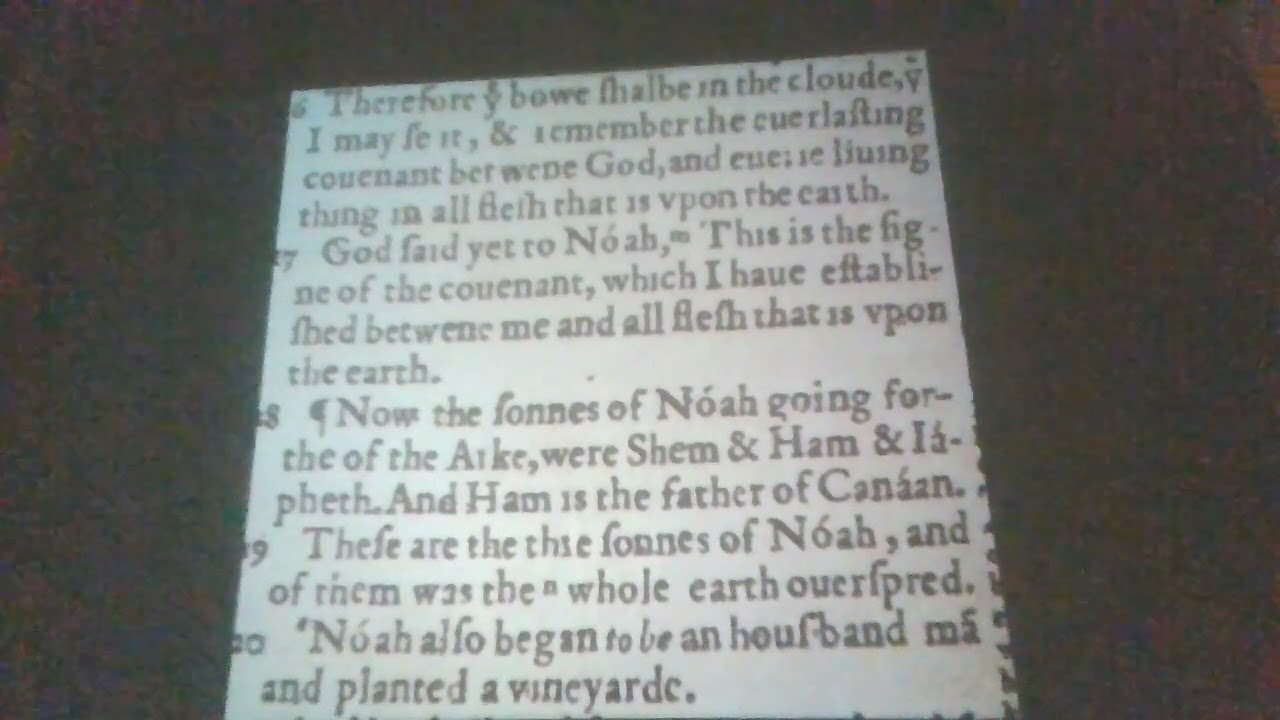 6 Therefore ẏ bowe ſhalbe in the cloude, ẏ
I may ſe it, & remember the euerlaſting
couenant betwene God, and euerie liuing
thing in all fleſh that is vpon the earth.
17 God ſaid yet to Nóah, ᵐ This is the ſig-
ne of the couenant, which I haue eſtabli-
ſhed betwene me and all fleſh that is vpon
the earth.
18 ¶ Now the ſonnes of Nóah going for-
the of the Arke, were Shem & Ham & Iá-
pheth. And Ham is the father of Canáan.
19 Theſe are the thre ſonnes of Nóah, and
of them was the ⁿ whole earth ouerſpred.
20 ‘Nóah alſo began to be an houſband mā
and planted a vineyarde.